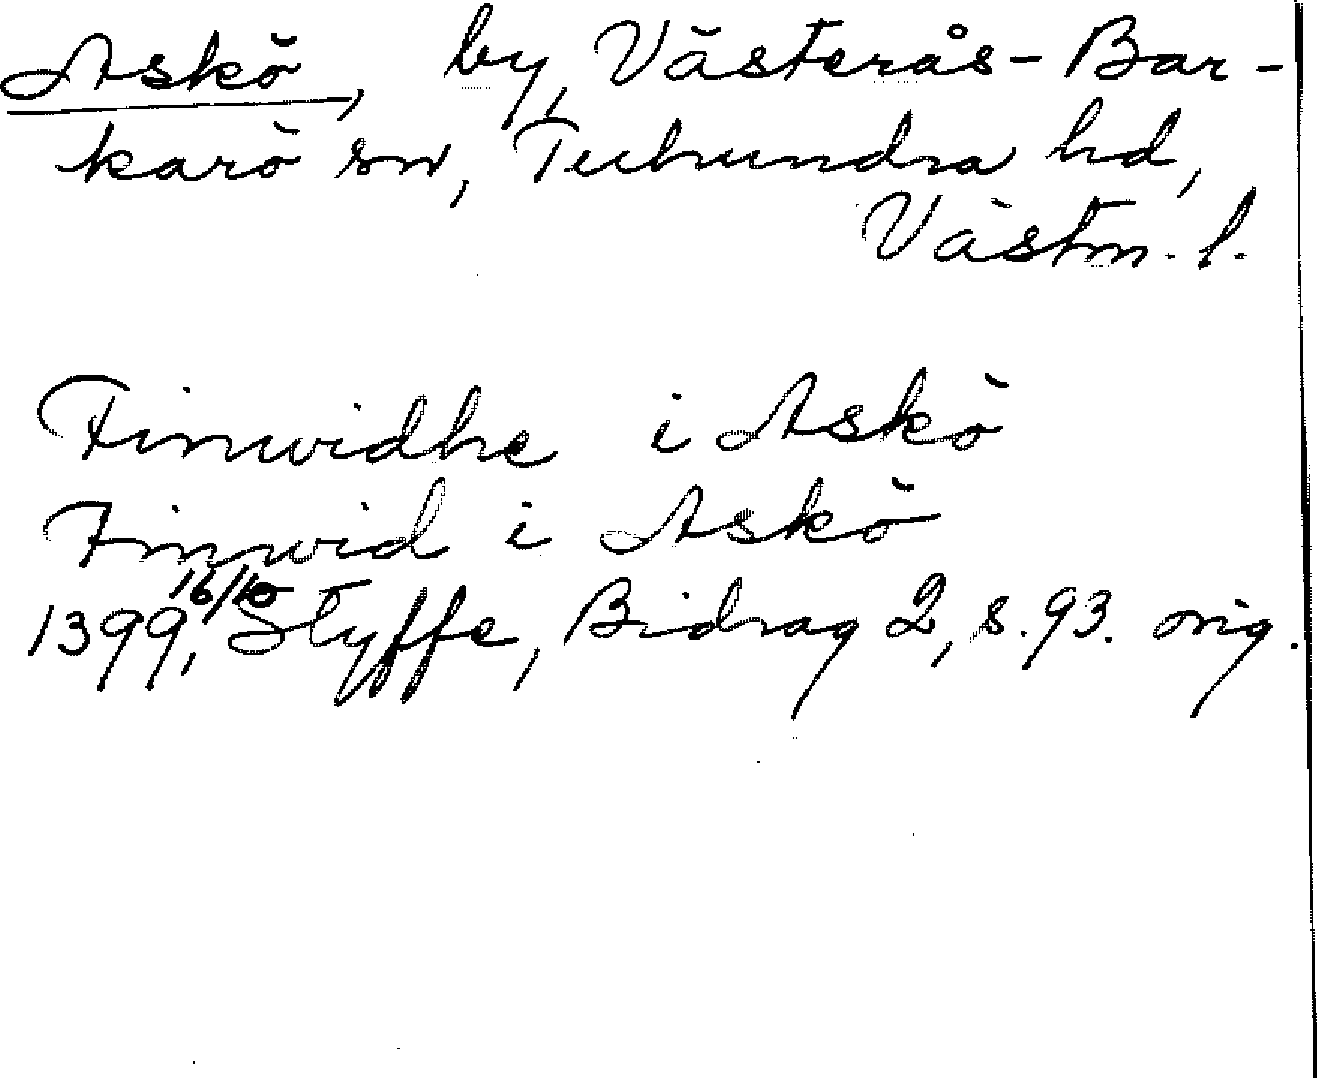 Askö, by, Västerås-Bar-
karö sn, Tuhundra hd,
Västm. l.
Finwidhe i Askö
Finwid i Askö
1399, 16/10 Styffe, Bidrag 2, s. 93. orig.